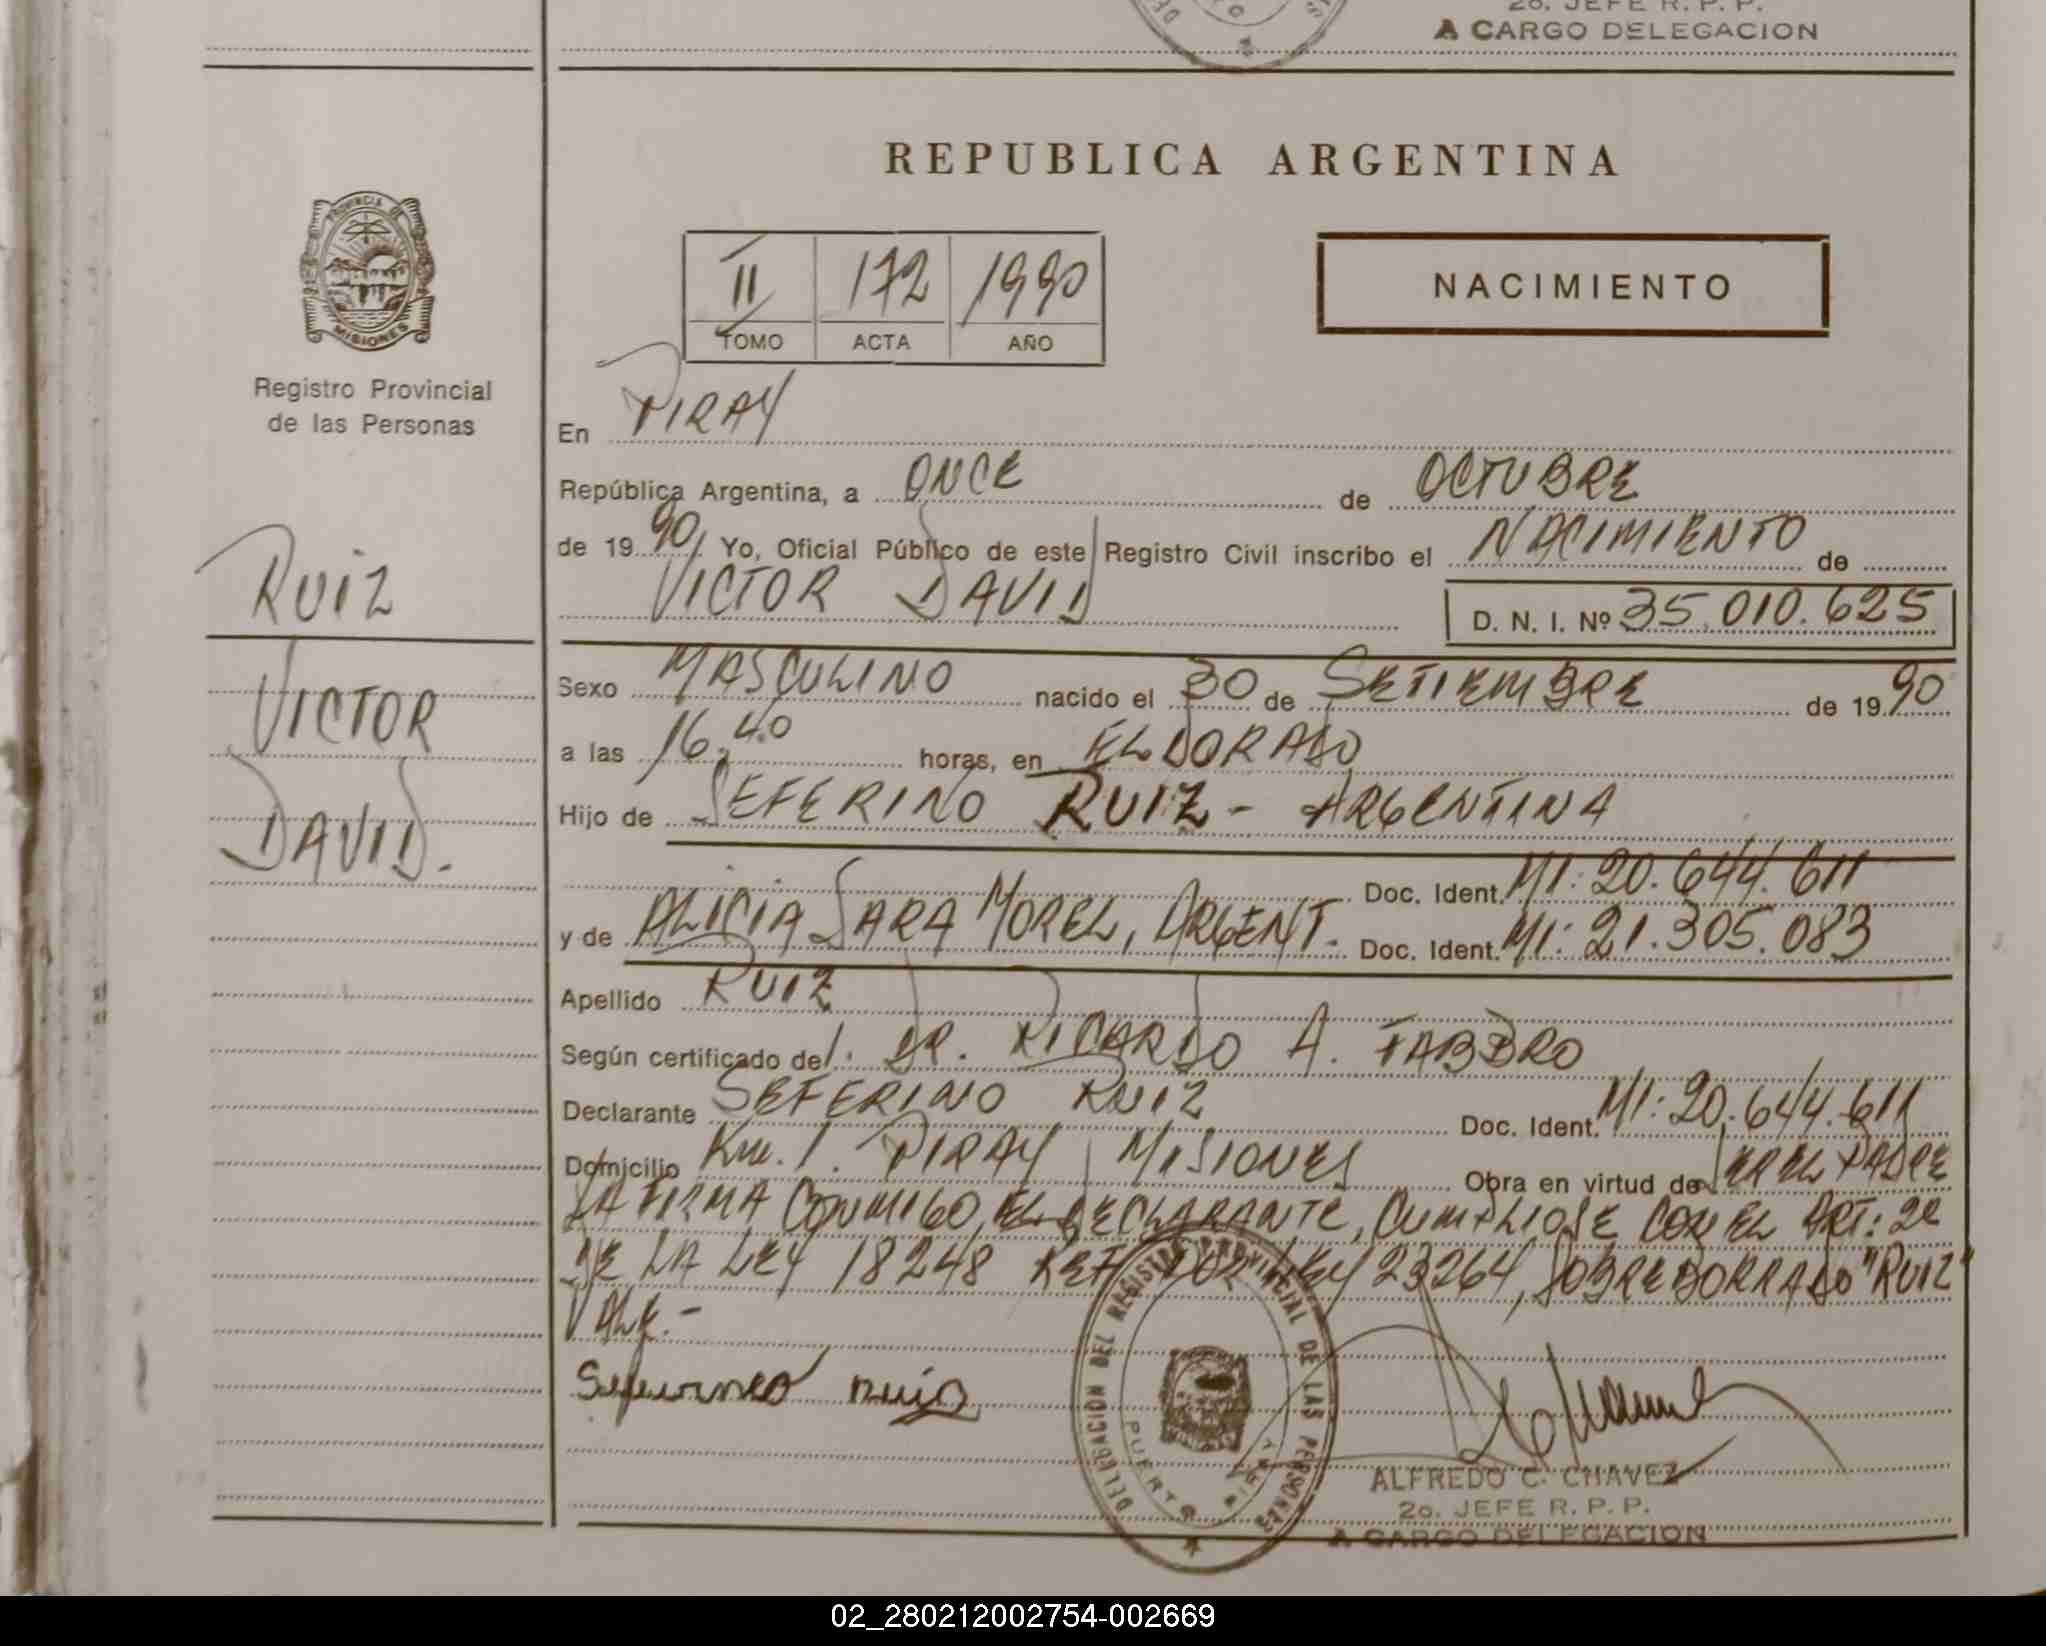 2o. JEFE R. P. P.
A CARGO DELEGACION
REPUBLICA ARGENTINA
PROVINCIA DE
MISIONES
Registro Provincial
de las Personas
II 172 1990
TOMO ACTA AÑO
NACIMIENTO
En PIRAY
República Argentina, a ONCE de OCTUBRE
de 1990 Yo, Oficial Público de este Registro Civil inscribo el NACIMIENTO de
VICTOR DAVID D. N. I. Nº 35.010.625
RUIZ
VICTOR
DAVID.
Sexo MASCULINO nacido el 30 de SETIEMBRE de 1990
a las 16,40 horas, en ELDORADO
Hijo de SEFERINO RUIZ - ARGENTINA
Doc. Ident. MI: 20.644.611
y de ALICIA SARA MOREL, ARGENT. Doc. Ident. MI: 21.305.083
Apellido RUIZ
Según certificado del. DR. RICARDO A. FABBRO
Declarante SEFERINO RUIZ Doc. Ident. MI: 20.644.611
Domicilio Km. 1. PIRAY MISIONES Obra en virtud de SER EL PADRE
LA FIRMA CONMIGO, EL DECLARANTE, CUMPLIOSE CON EL ART: 2º
DE LA LEY 18248 REF. POR LEY 23264, SOBREBORRADO "RUIZ"
VALE.-
Seferino Ruiz
DELEGACION DEL REGISTRO PROVINCIAL DE LAS PERSONAS
PUERTO PIRAY
ALFREDO C. CHAVEZ
2o. JEFE R. P. P.
A CARGO DELEGACION
02_280212002754-002669